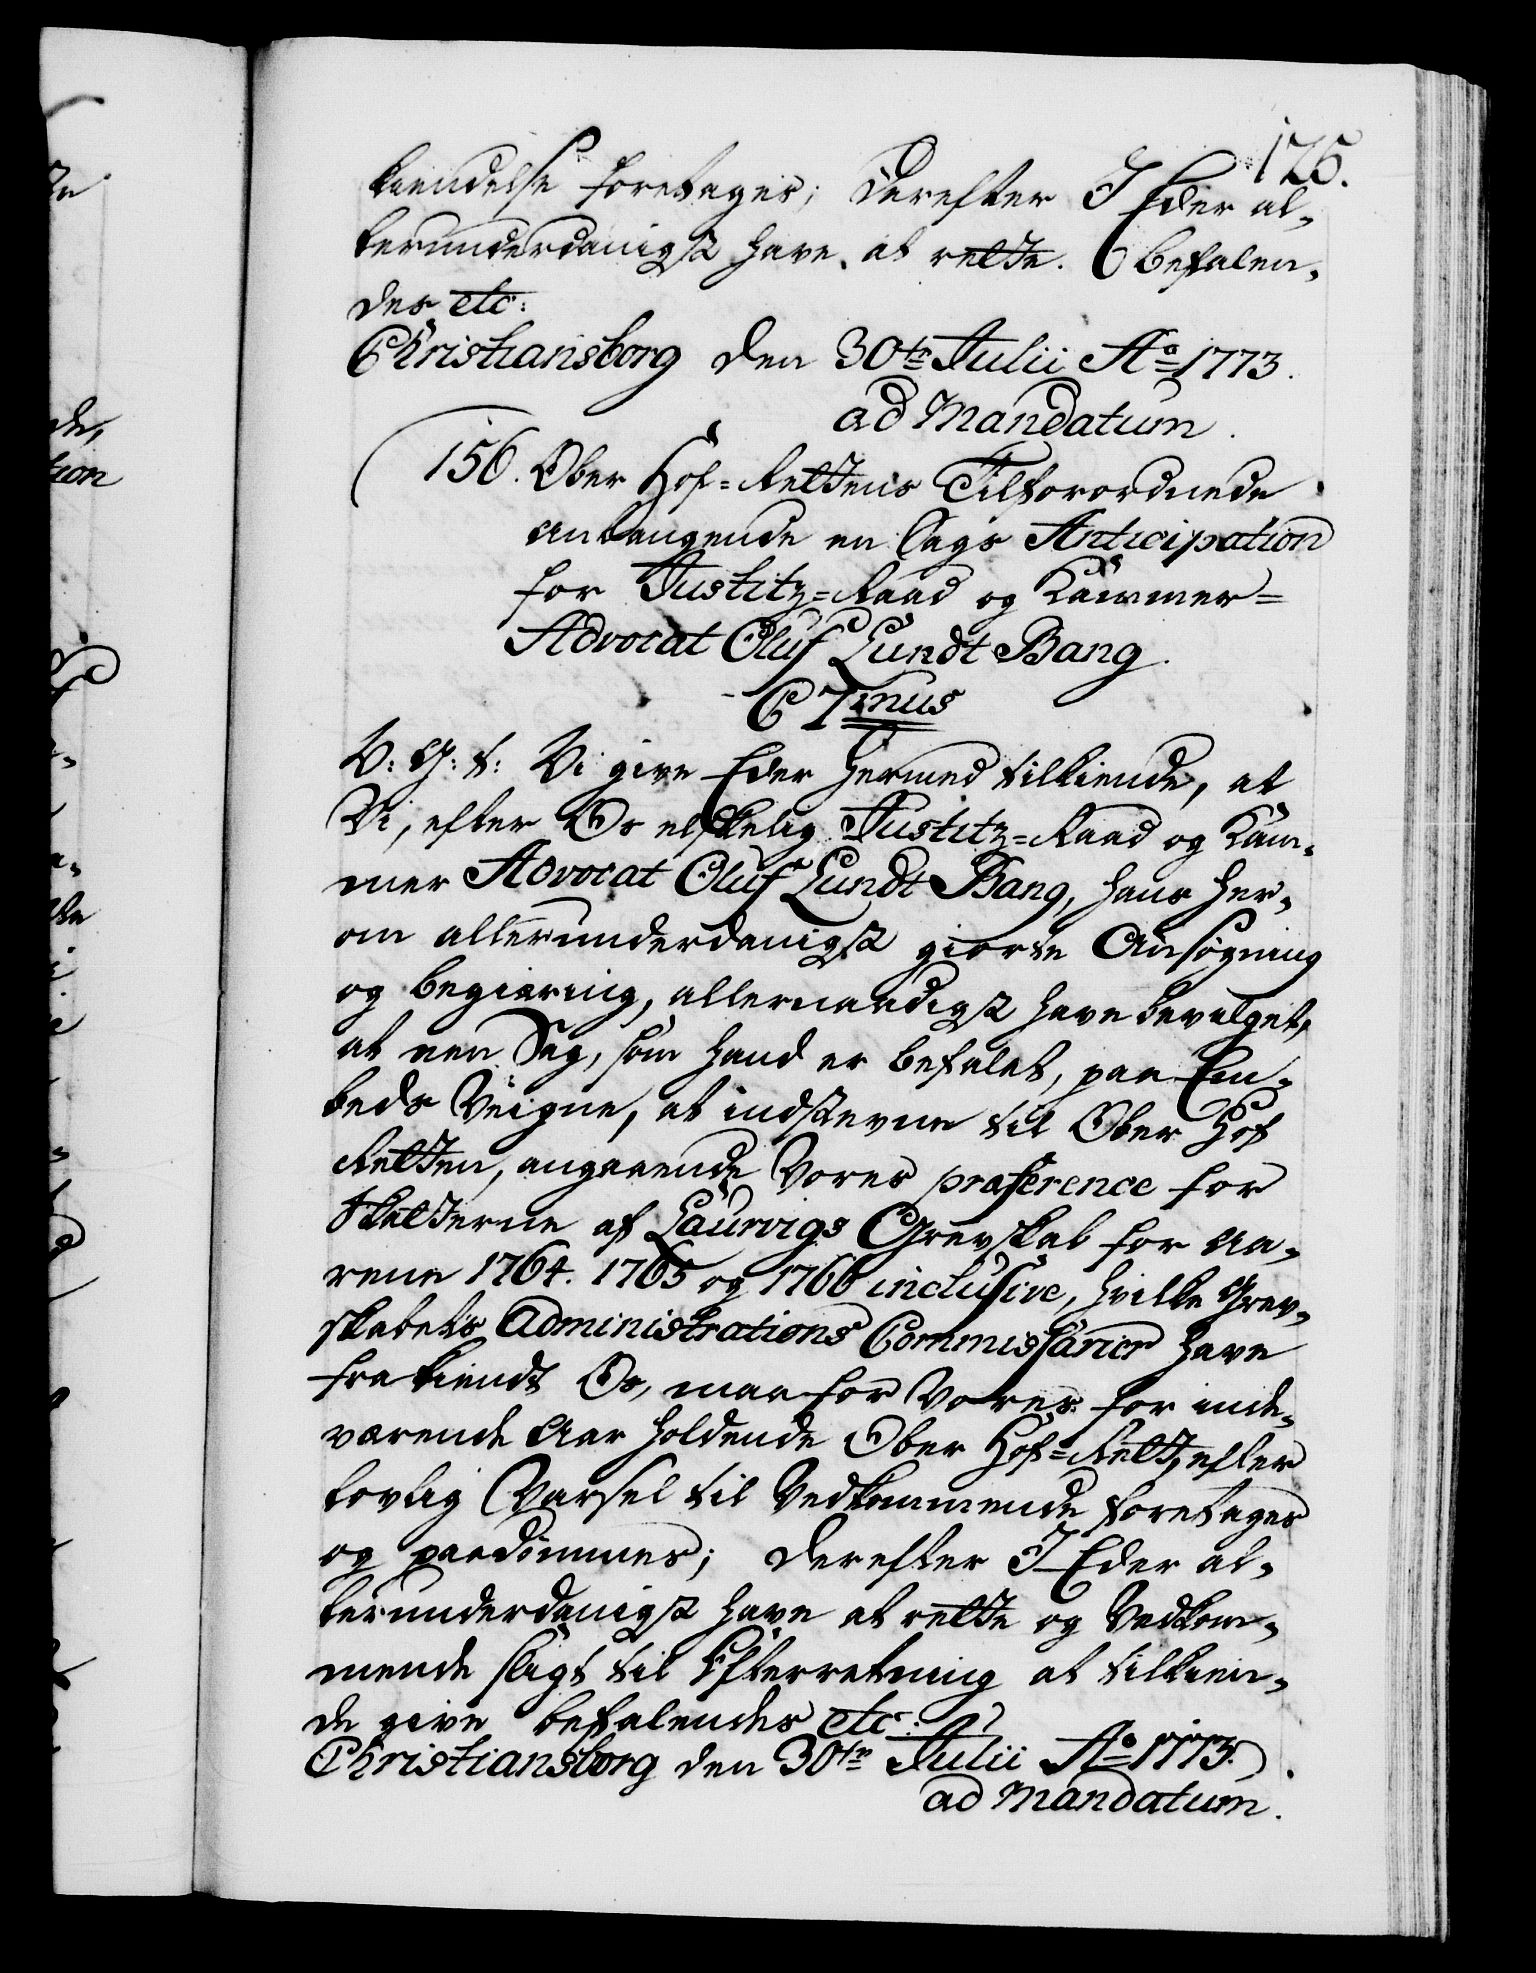 126.
kiendelse foretages; Derefter I Eder al-
lerunderdanigst have at rette. Befalen-
des etc:
Christiansborg den 30te Julii Ao 1773.
ad Mandatum.
156. Ober Hof-Rettens Tilforordnede
anlangende en Sags Anticipation
for Justitz-Raad og Kammer-
Advocat Oluf Lundt Bang.
C 7mus
V: G: t: Vi give Eder hermed tilkiende, at
Vi, efter Os elskelig Justitz-Raad og Kam-
mer Advocat Oluf Lundt Bang, hans her-
om allerunderdanigst giorte Ansøgning
og begiering, allernaadigst have bevilget,
at een Sag, som hand er befalet, paa Em-
beds Veigne, at indstevne til Ober Hof
Retten, angaaende Vores præference for
Skatterne af Laurvigs Grevskab for Aa-
rene 1764. 1765 og 1766 inclusive, hvilke Grev-
skabets Administrations Commissarier have
frakiendt Os, maa for Vores for inde-
værende Aar holdende Ober Hof-Rett, efter
lovlig Varsel til Vedkommende foretages
og paadømmes; Derefter I Eder al-
lerunderdanigst have at rette og Vedkom-
mende sligt til Efterretning at tilkien-
de give befalendes etc:
Christiansborg den 30te Julii Ao 1773.
ad Mandatum.